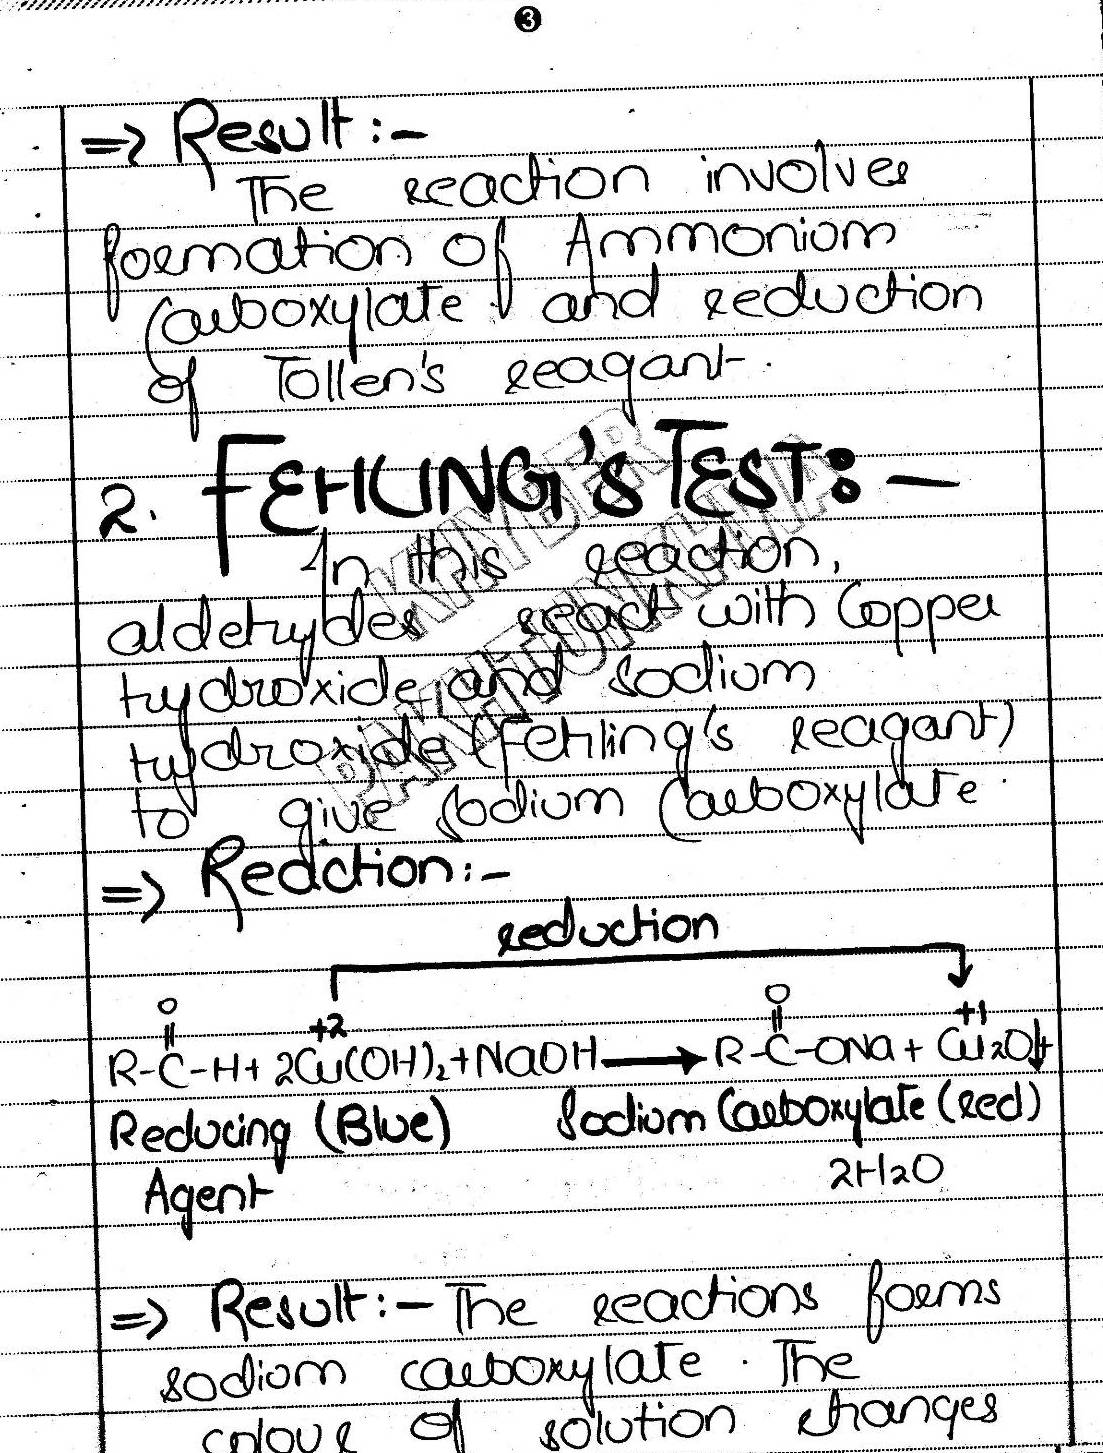 3
=> Result :-
The reaction involves
formation of Ammonium
Carboxylate and reduction
of Tollen's reagant.
2. FEHLING'S TEST: -
In this reaction,
aldehydes react with Copper
hydroxide and sodium
hydroxide (Fehling's reagant)
to give Sodium Carboxylate.
=> Reaction :-
reduction
O +2 O +1
R-C-H + 2Cu(OH)₂ + NaOH → R-C-ONa + Cu₂O↓+
Reducing (Blue) Sodium Carboxylate (red)
Agent 2H₂O
=> Result :- The reactions forms
sodium carboxylate. The
colour of solution changes
KHYBER
PAKHTUNKHWA